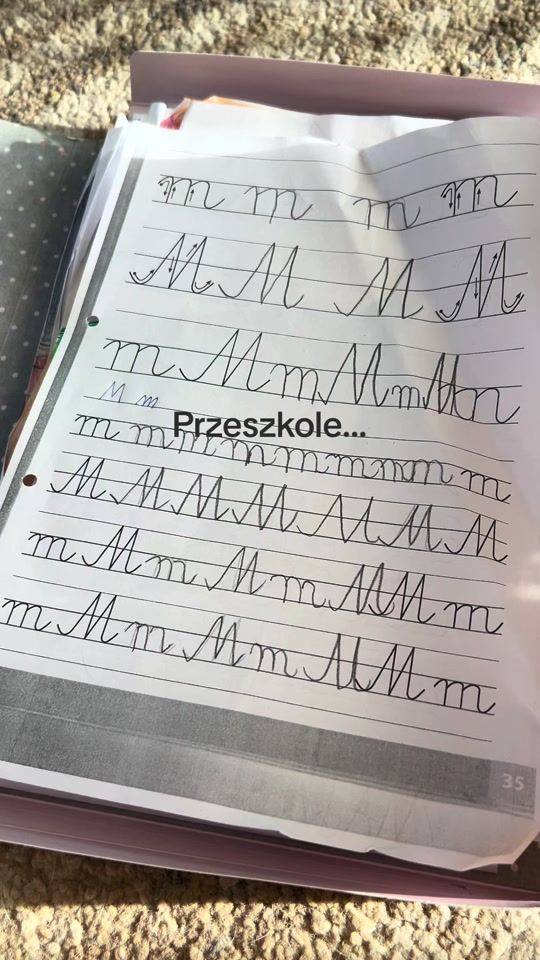 m m m m
M M M M
m M m M m M m
M m
Przeszkole...
m m m m m m m m m
M M M M M M M
m M m M m M M m
m M m M m M M m
35